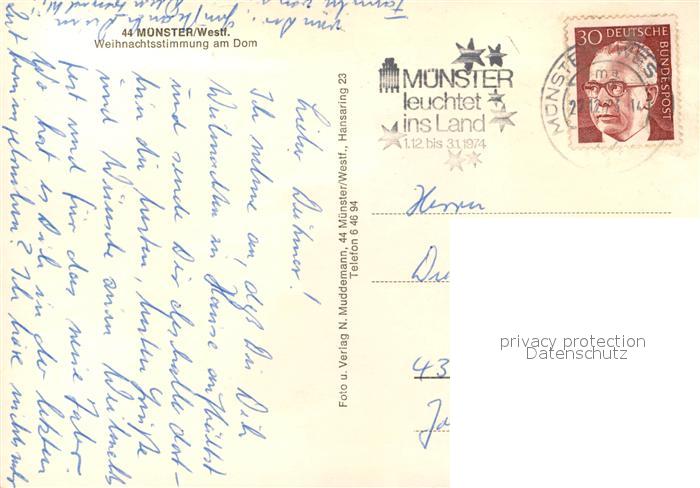 44 MÜNSTER/Westf.
Weihnachtsstimmung am Dom
MÜNSTER
leuchtet
ins Land
1.12. bis 3.1.1974
30 DEUTSCHE BUNDESPOST
Foto u. Verlag N. Muddemann, 44 Münster/Westf., Hansaring 23
Telefon 6 46 94
Herrn
43
privacy protection
Datenschutz
Lieber
Ich nehme an, daß Du Dich
Weihnachten zu Hause aufhältst
und sende Dir deshalb dort-
hin die besten, besten Grüße
und Wünsche zum Weihnachts
fest und für das neue Jahr.
Wo hast es Dich in der letzten
Zeit herumgetrieben? Ich höre nichts mehr